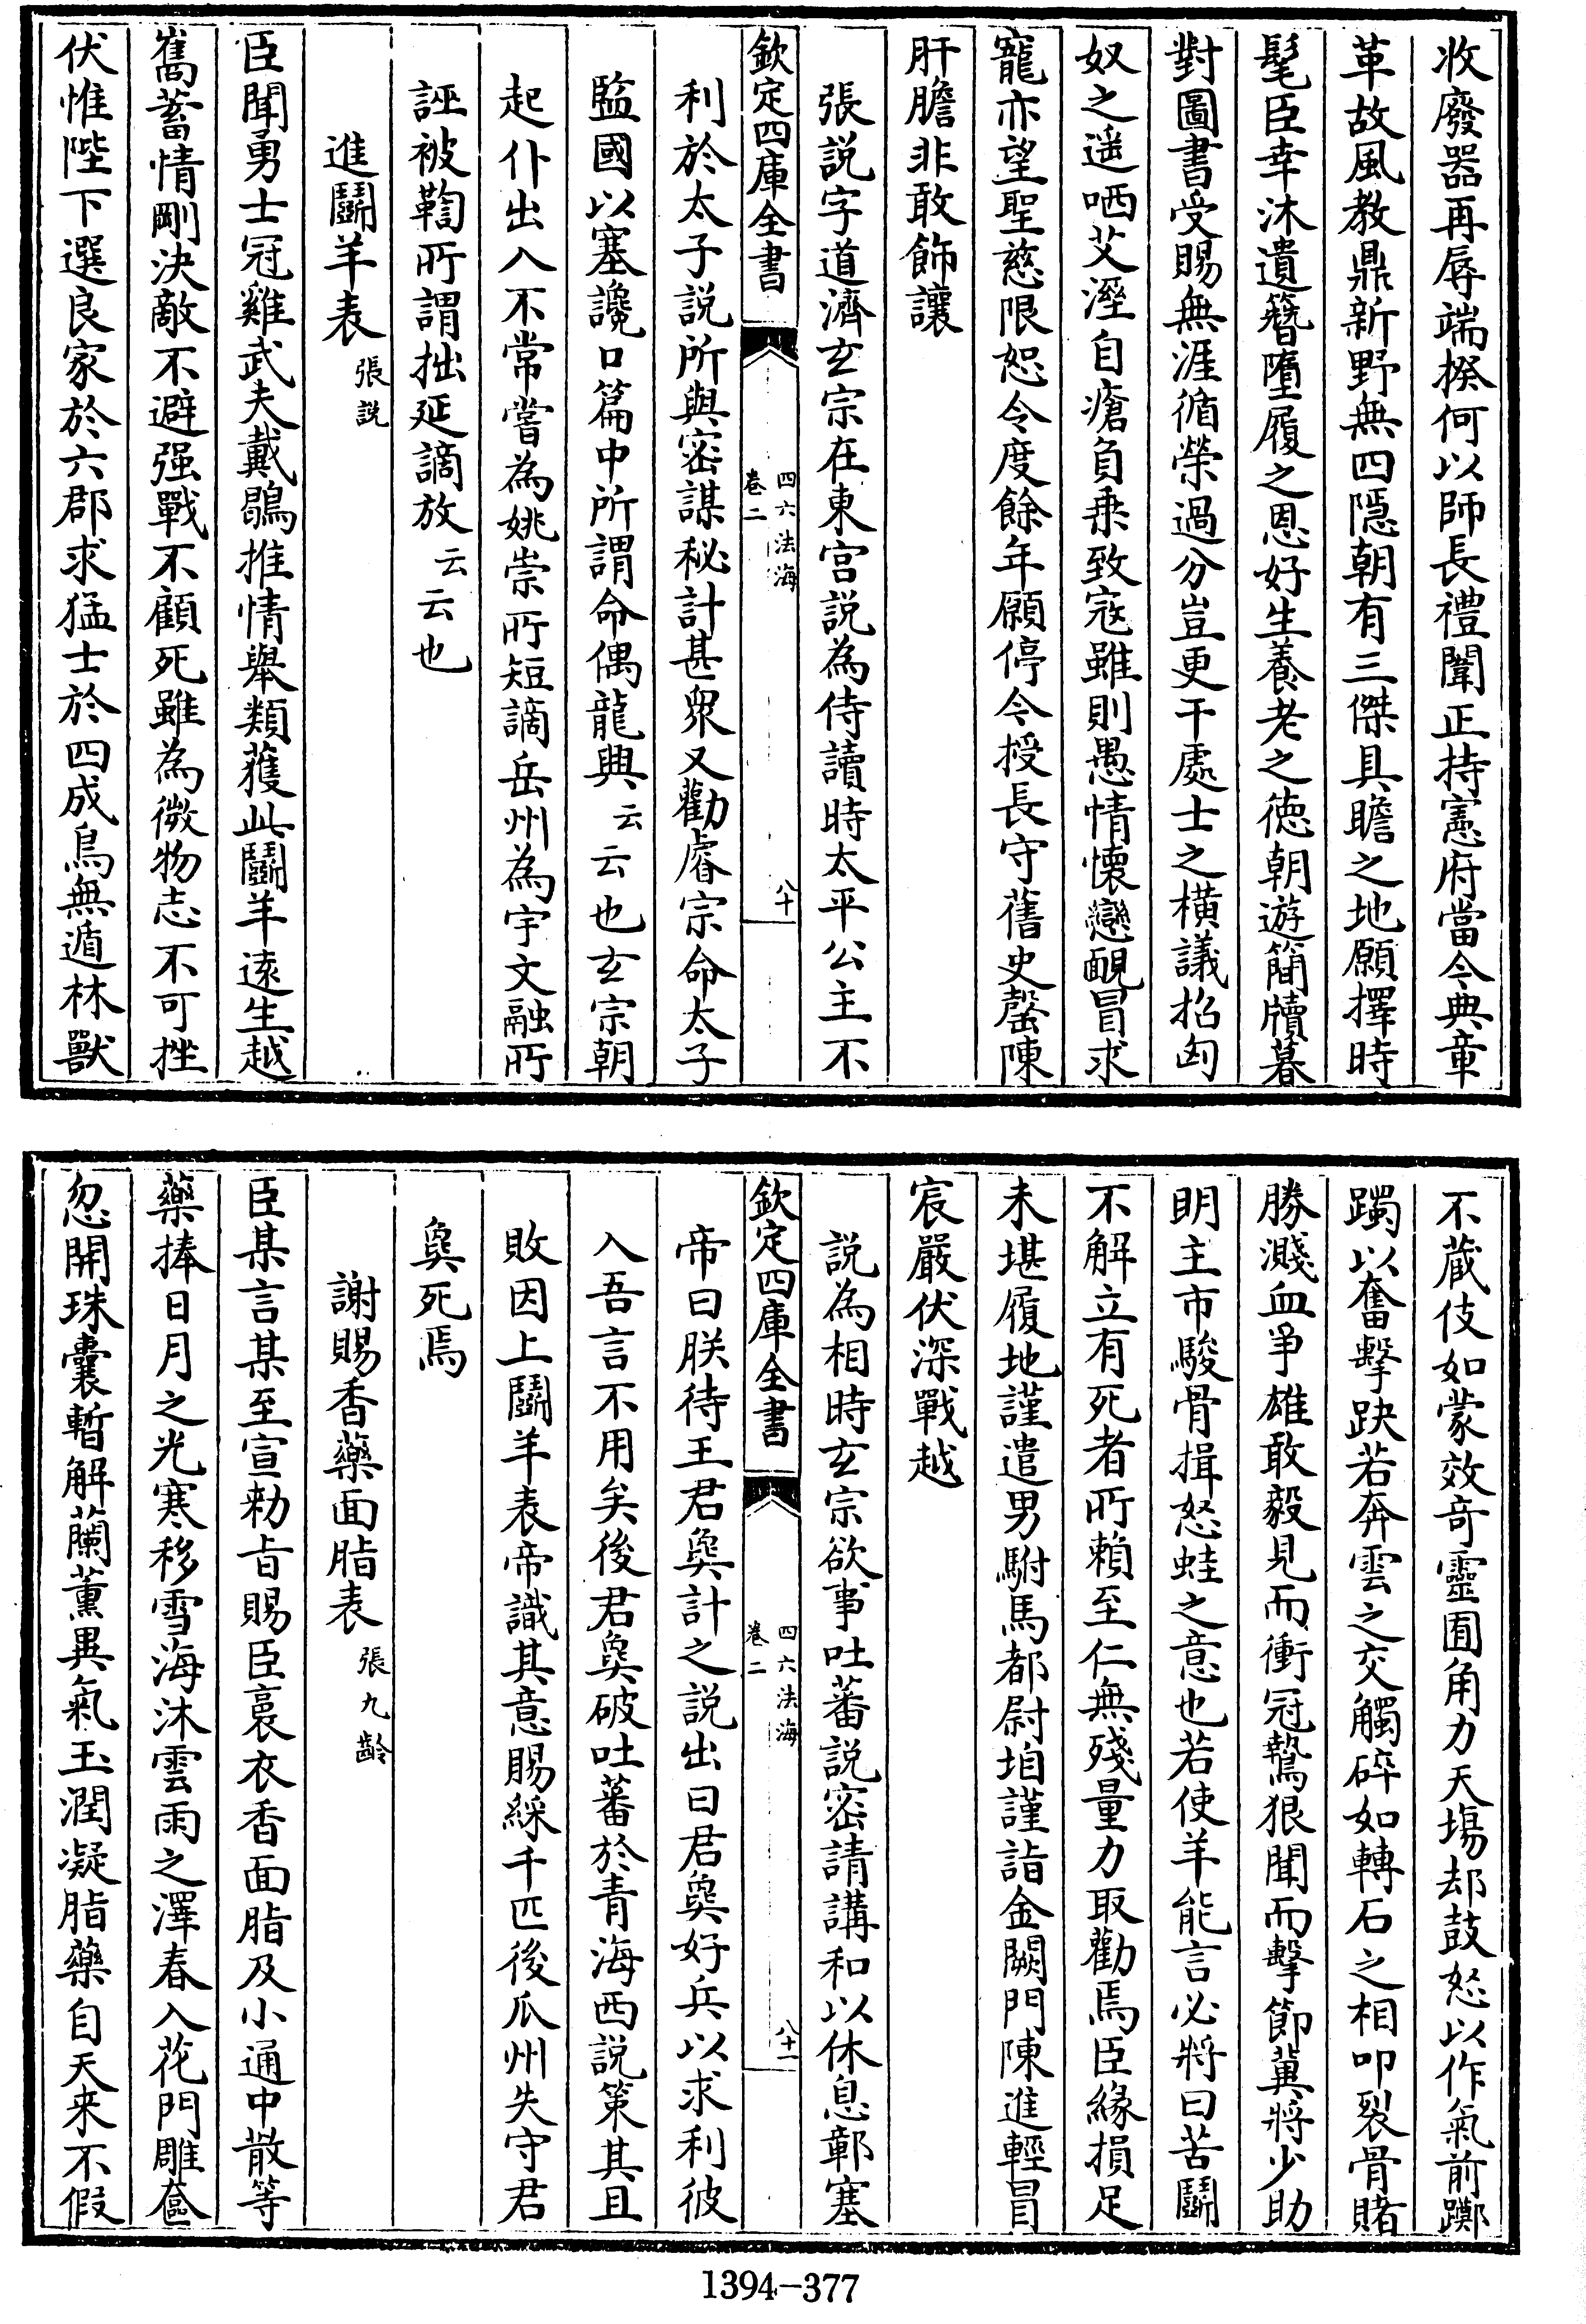 收廢器再辱端揆何以師長禮闈正持憲府當今典章
革故風教鼎新野無四隱朝有三傑具瞻之地願擇時
髦臣幸沐遺簪墮履之恩好生養老之德朝遊簡牘暮
對圖書受賜無涯循榮過分豈更干處士之橫議招匈
奴之遥哂艾溼自瘡負乗致寇雖則愚情懷戀靦冒求
寵亦望聖慈限恕令度餘年願停今授長守舊史罄陳
肝膽非敢飾讓
張説字道濟玄宗在東宫説為侍讀時太平公主不
欽定四庫全書
四六法海
卷二
八十
利於太子説所與密謀秘計甚衆又勸睿宗命太子
監國以塞讒口篇中所謂命偶龍興云云也玄宗朝
起仆出入不常嘗為姚崇所短謫岳州為宇文融所
誣被鞫所謂拙延謫放云云也
進鬬羊表張説
臣聞勇士冠雞武夫戴鶡推情舉類獲此鬬羊逺生越
巂蓄情剛決敵不避强戰不顧死雖為微物志不可挫
伏惟陛下選良家於六郡求猛士於四成鳥無遁林獸
不藏伎如蒙效奇靈囿角力天塲却鼓怒以作氣前躑
躅以奮擊趹若奔雲之交觸碎如轉石之相叩裂骨賭
勝濺血爭雄敢毅見而衝冠鷙狠聞而擊節冀將少助
眀主市駿骨揖怒蛙之意也若使羊能言必將曰苦鬬
不解立有死者所賴至仁無殘量力取勸焉臣緣損足
未堪履地謹遣男駙馬都尉垍謹詣金闕門陳進輕冒
宸嚴伏深戰越
説為相時玄宗欲事吐蕃説密請講和以休息鄣塞
欽定四庫全書
四六法海
卷二
八十一
帝曰朕待王君㚟計之説出曰君㚟好兵以求利彼
入吾言不用矣後君㚟破吐蕃於青海西説策其且
敗因上鬬羊表帝識其意賜綵千匹後瓜州失守君
㚟死焉
謝賜香藥面脂表張九齡
臣某言某至宣勅㫖賜臣裛衣香面脂及小通中散等
藥捧日月之光寒移雪海沐雲雨之澤春入花門雕奩
忽開珠囊暫解蘭薰異氣玉潤凝脂藥自天来不假
1394-377